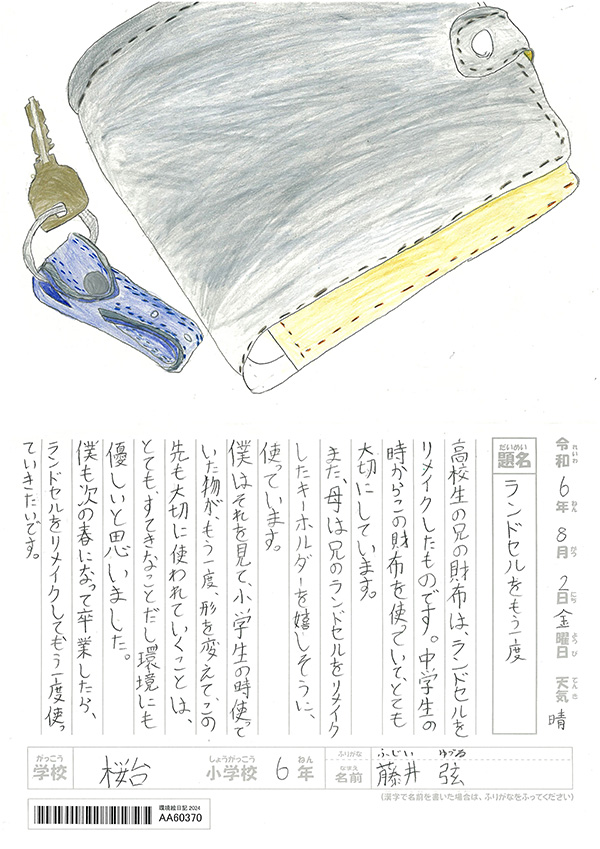 令和6年8月2日金曜日 天気 晴
れいわ ねん がつ にち ようび てんき
だいめい
題名 ランドセルをもう一度
高校生の兄の財布は、ランドセルを
リメイクしたものです。中学生の
時からこの財布を使っていて、とても
大切にしています。
また、母は兄のランドセルをリメイク
したキーホルダーを嬉しそうに、
使っています。
僕はそれを見て、小学生の時使って
いた物が、もう一度、形を変えて、この
先も大切に使われていくことは、
とても、すてきなことだし環境にも
優しいと思いました。
僕も次の春になって卒業したら、
ランドセルをリメイクしてもう一度使っ
ていきたいです。
がっこう しょうがっこう ねん ふりがな ふじい ゆづる
学校 桜台 小学校 6年 なまえ 名前 藤井 弦
(漢字で名前を書いた場合は、ふりがなをふってください)
環境絵日記2024
AA60370